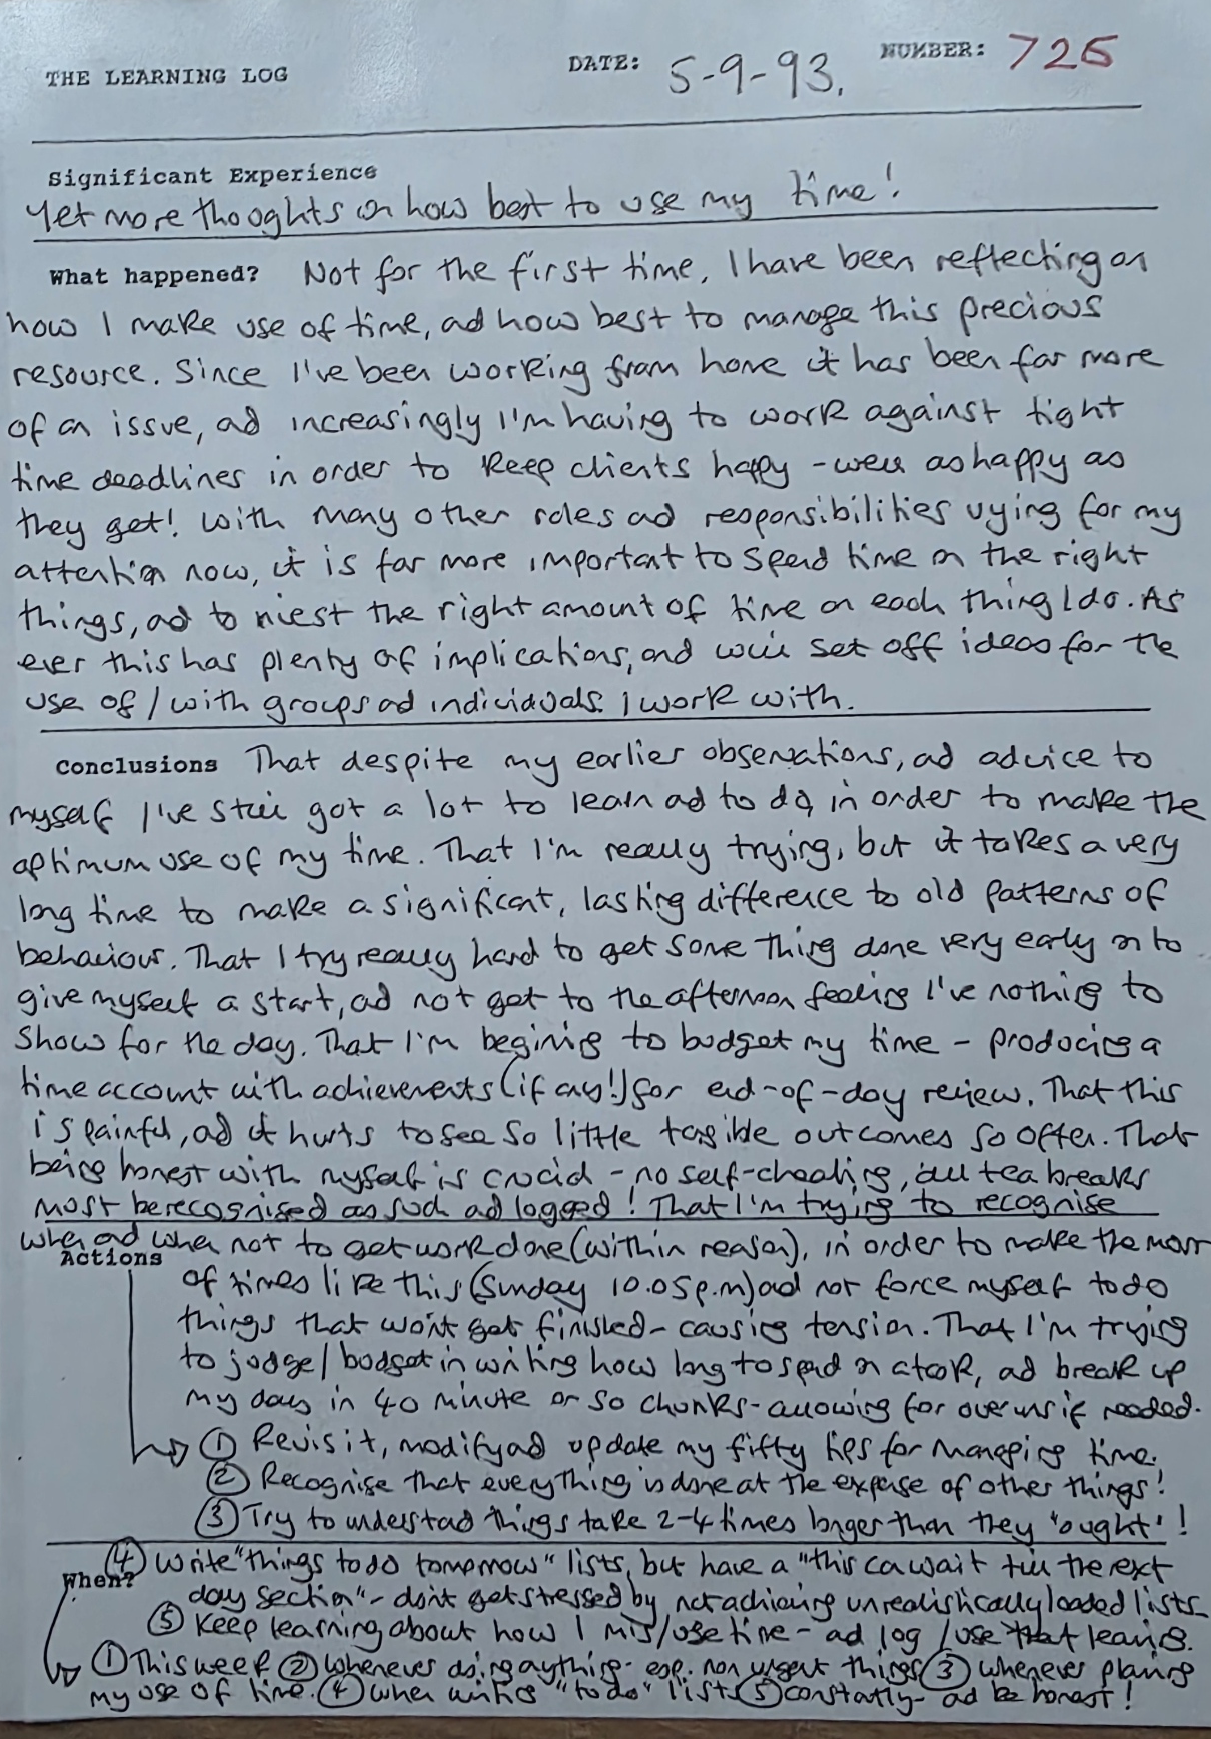 THE LEARNING LOG DATE: 5-9-93. NUMBER: 725
Significant Experience
Yet more thoughts on how best to use my time!
What happened? Not for the first time, I have been reflecting on
how I make use of time, ad how best to manage this precious
resource. Since I've been working from home it has been far more
of an issue, ad increasingly I'm having to work against tight
time deadlines in order to keep clients happy - well as happy as
they get! With many other roles ad responsibilities vying for my
attention now, it is far more important to spend time on the right
things, ad to invest the right amount of time on each thing I do. As
ever this has plenty of implications, and will set off ideas for the
use of / with groups ad individuals I work with.
Conclusions That despite my earlier observations, ad advice to
myself I've still got a lot to learn ad to do, in order to make the
optimum use of my time. That I'm really trying, but it takes a very
long time to make a significant, lasting difference to old patterns of
behaviour. That I try really hard to get some thing done very early on to
give myself a start, ad not get to the afternoon feeling I've nothing to
show for the day. That I'm begining to budget my time - producing a
time account with achievements (if any!) for end-of-day review. That this
is painful, ad it hurts to see so little tangible outcomes so often. That
being honest with myself is crucial - no self-cheating, all tea breaks
must be recognised as such ad logged! That I'm trying to recognise
when ad when not to get work done (within reason), in order to make the most
Actions
of times like this (Sunday 10.05p.m) ad not force myself to do
things that won't get finished - causing tension. That I'm trying
to judge / budget in writing how long to spend on a task, ad break up
my days in 40 minute or so chunks - allowing for overuns if needed.
① Revisit, modify ad update my fifty tips for managing time.
② Recognise that everything is done at the expense of other things!
③ Try to understand things take 2-4 times longer than they 'ought'!
④ Write "things to do tomorrow" lists, but have a "this can wait till the next
When?
day section" - don't get stressed by not achieving unrealistically loaded lists.
⑤ Keep learning about how I mis/use time - ad log / use that learning.
① This week ② Whenever doing anything - esp. non urgent things ③ Whenever planning
my use of time. ④ When writing "to do" lists ⑤ Constantly - ad be honest!